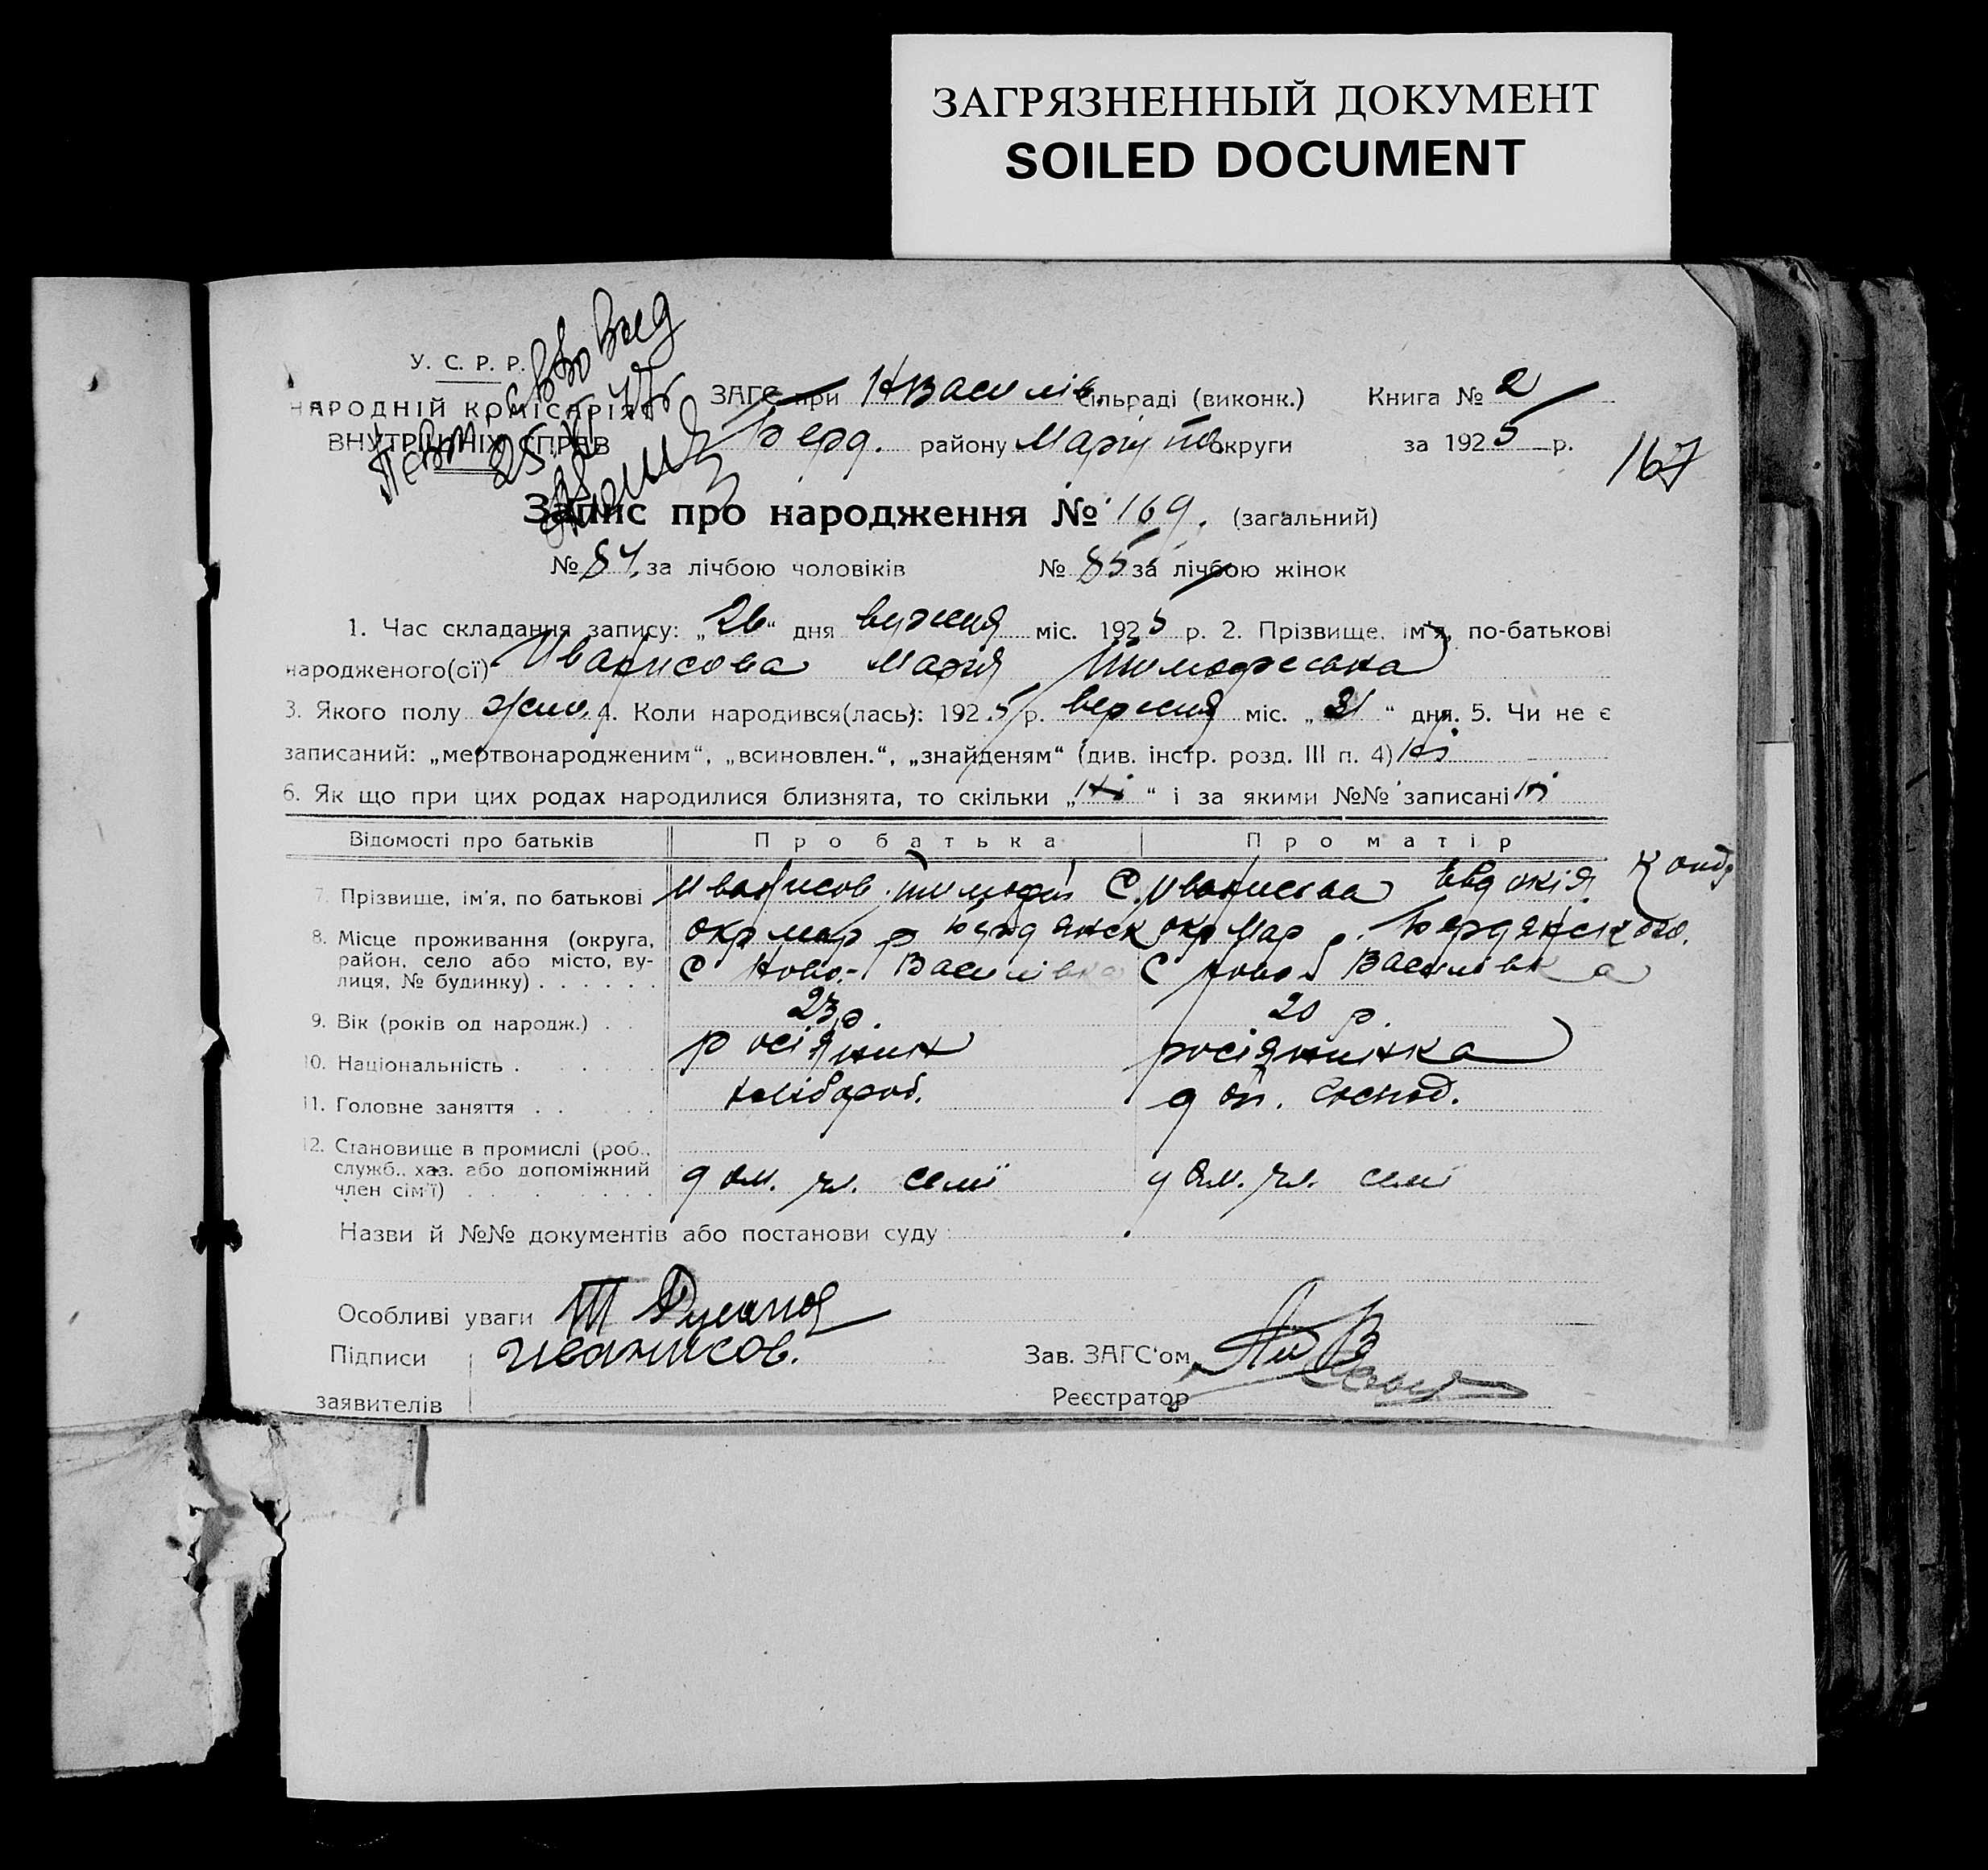 ЗАГРЯЗНЕННЫЙ ДОКУМЕНТ
SOILED DOCUMENT
У. С. Р. Р.
НАРОДНІЙ КОМІСАРІЯТ
ВНУТРІШНІХ СПРАВ
ЗАГС при НВасилів. сільраді (виконк.) Книга № 2
Берд. району Маріуп. округи за 1925 р.
167
Запис про народження № 169. (загальний)
№ 84. за лічбою чоловіків № 85 за лічбою жінок
1. Час складання запису: „26“ дня вересня міс. 1925 р. 2. Прізвище, ім'я, по-батькові
народженого(ої) Иванисова Мария Тимофеевна
3. Якого полу жіно. 4. Коли народився(лась): 1925 р. вересня міс. „21“ дня. 5. Чи не є
записаний: „мертвонародженим“, „всиновлен.“, „знайденям“ (див. інстр. розд. III п. 4) ні
6. Як що при цих родах народилися близнята, то скільки „ні“ і за якими №№ записані ні
Відомості про батьків Про батька Про матір
7. Прізвище, ім'я, по батькові Иванисов Тимофій С. Иванисова Евдокія Конд
8. Місце проживання (округа, район, село або місто, вулиця, № будинку) . . . . . .
окр мар р Бердянск окр Мар р. Бердянского.
с Ново-Василівка с Ново Василівка
9. Вік (років од народж.) . . 23 р. 20 р.
10. Національність . росіянин росіянинка
11. Головне заняття . . хлібороб. дом. господ.
12. Становище в промислі (роб., служб., хаз. або допоміжний член сім'ї) дом. чл. семї дом. чл. семї
Назви й №№ документів або постанови суду
Особливі уваги
Підписи Иванисов.
Зав. ЗАГС'ом
заявителів
Реєстратор